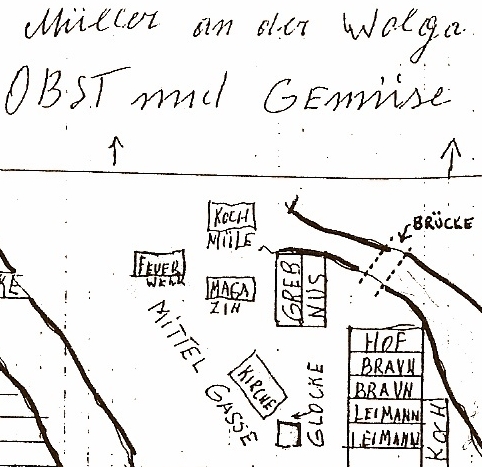 Müller an der Wolga
OBST und GEMÜSE
BRÜCKE
KOCH
MÜLE
FEUER
WERK
MAGA
ZIN
GREB
NUS
KE
MITTEL GASSE
KIRCHE
GLOCKE
HOF
BRAUN
BRAUN
LEIMANN
LEIMANN
KOCH